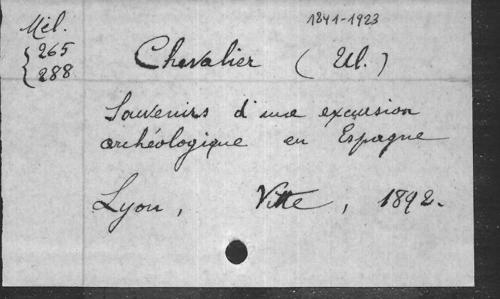 1841-1923
Mél.
265
288
Chevalier (Ul.)
Souvenirs d'une excursion
archéologique en Espagne
Lyon, Vitte, 1892.